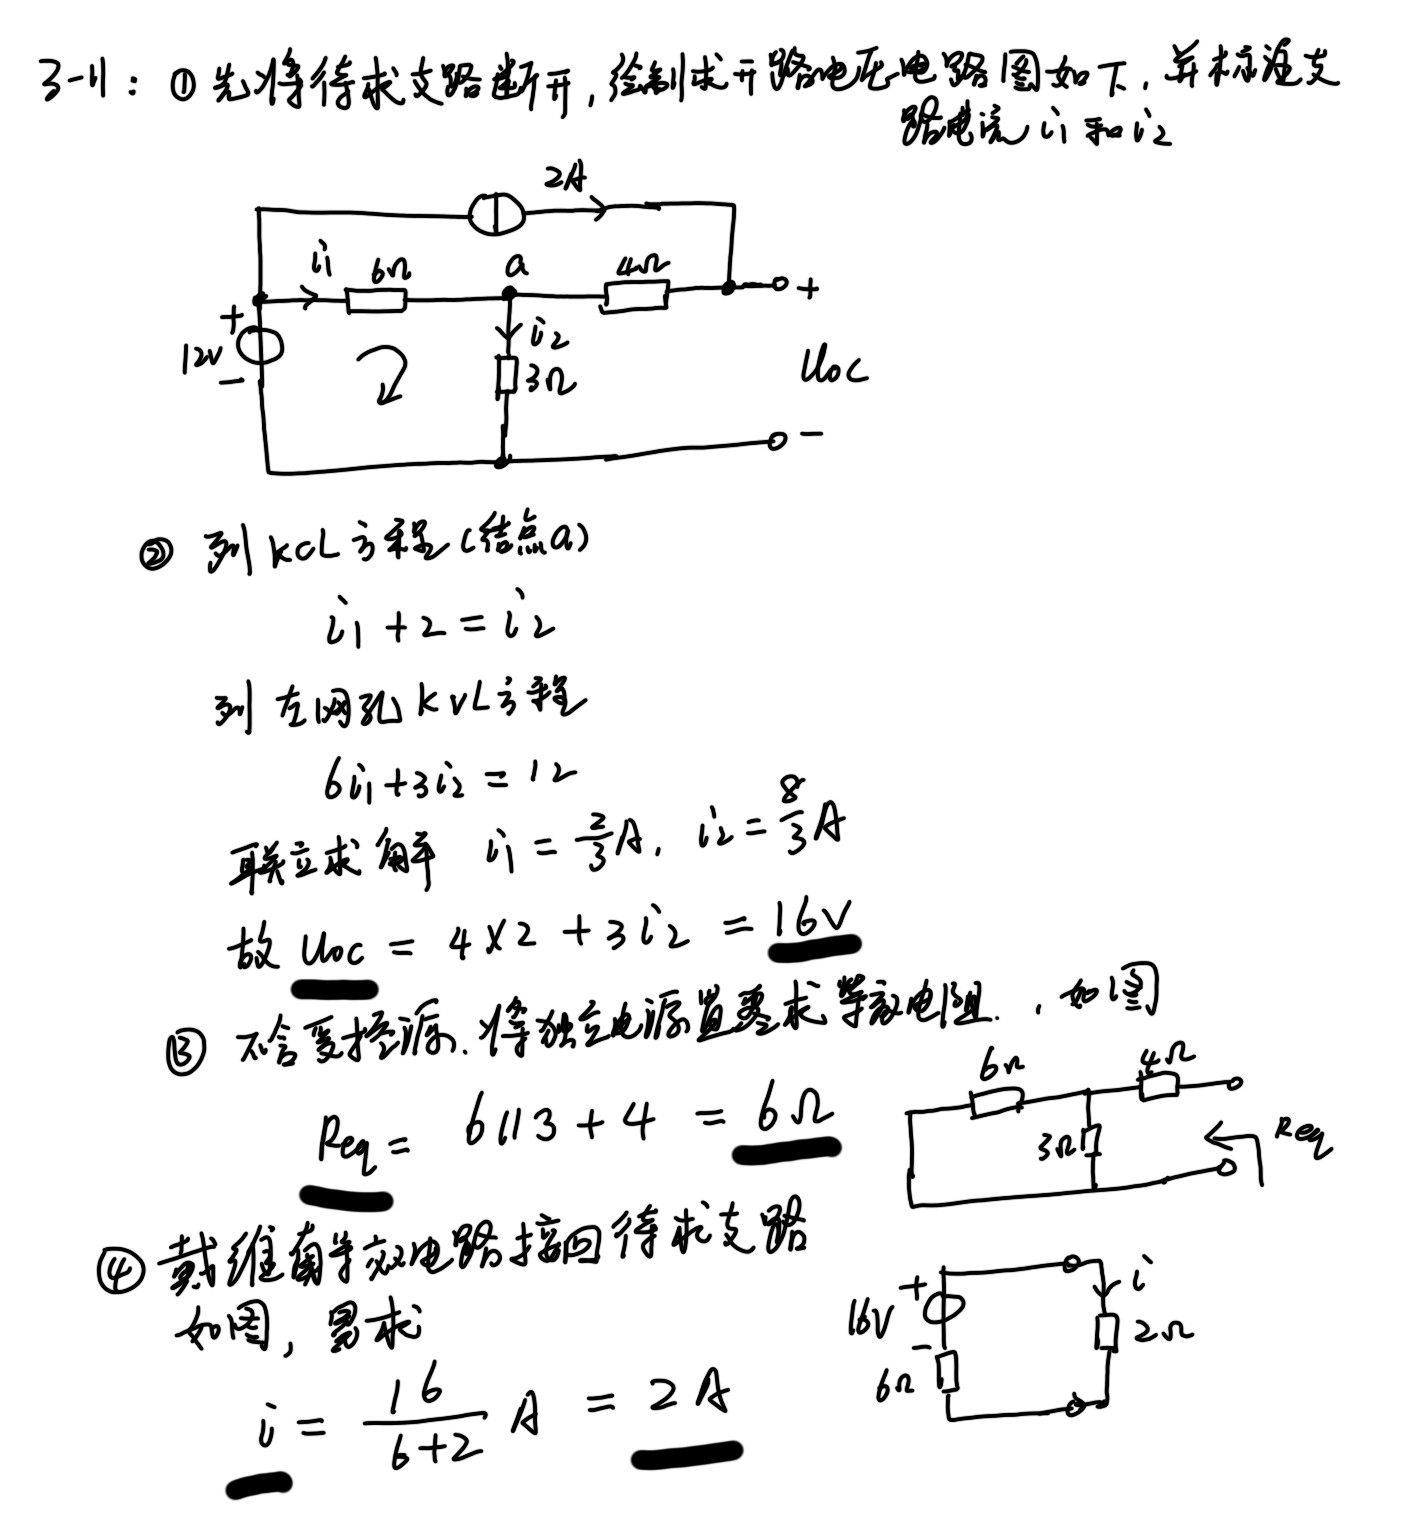 3-11: ① 先将待求支路断开, 绘制求开路电压电路图如下, 并标注支
路电流 i₁ 和 i₂
2A
i₁ 6Ω a 4Ω
+ +
12V i₂
3Ω Uoc
- -
② 列 KCL 方程 (结点a)
i₁ + 2 = i₂
列 左网孔 KVL 方程
6i₁ + 3i₂ = 12
联立求解 i₁ = 2/3 A, i₂ = 8/3 A
故 Uoc = 4×2 + 3i₂ = 16V
③ 不含受控源. 将独立电源置零求等效电阻. , 如图
6Ω 4Ω
Req = 6//3 + 4 = 6Ω
3Ω Req
④ 戴维南等效电路接回待求支路
如图, 易求
+ i
16V 2Ω
-
6Ω
i = 16/(6+2) A = 2A